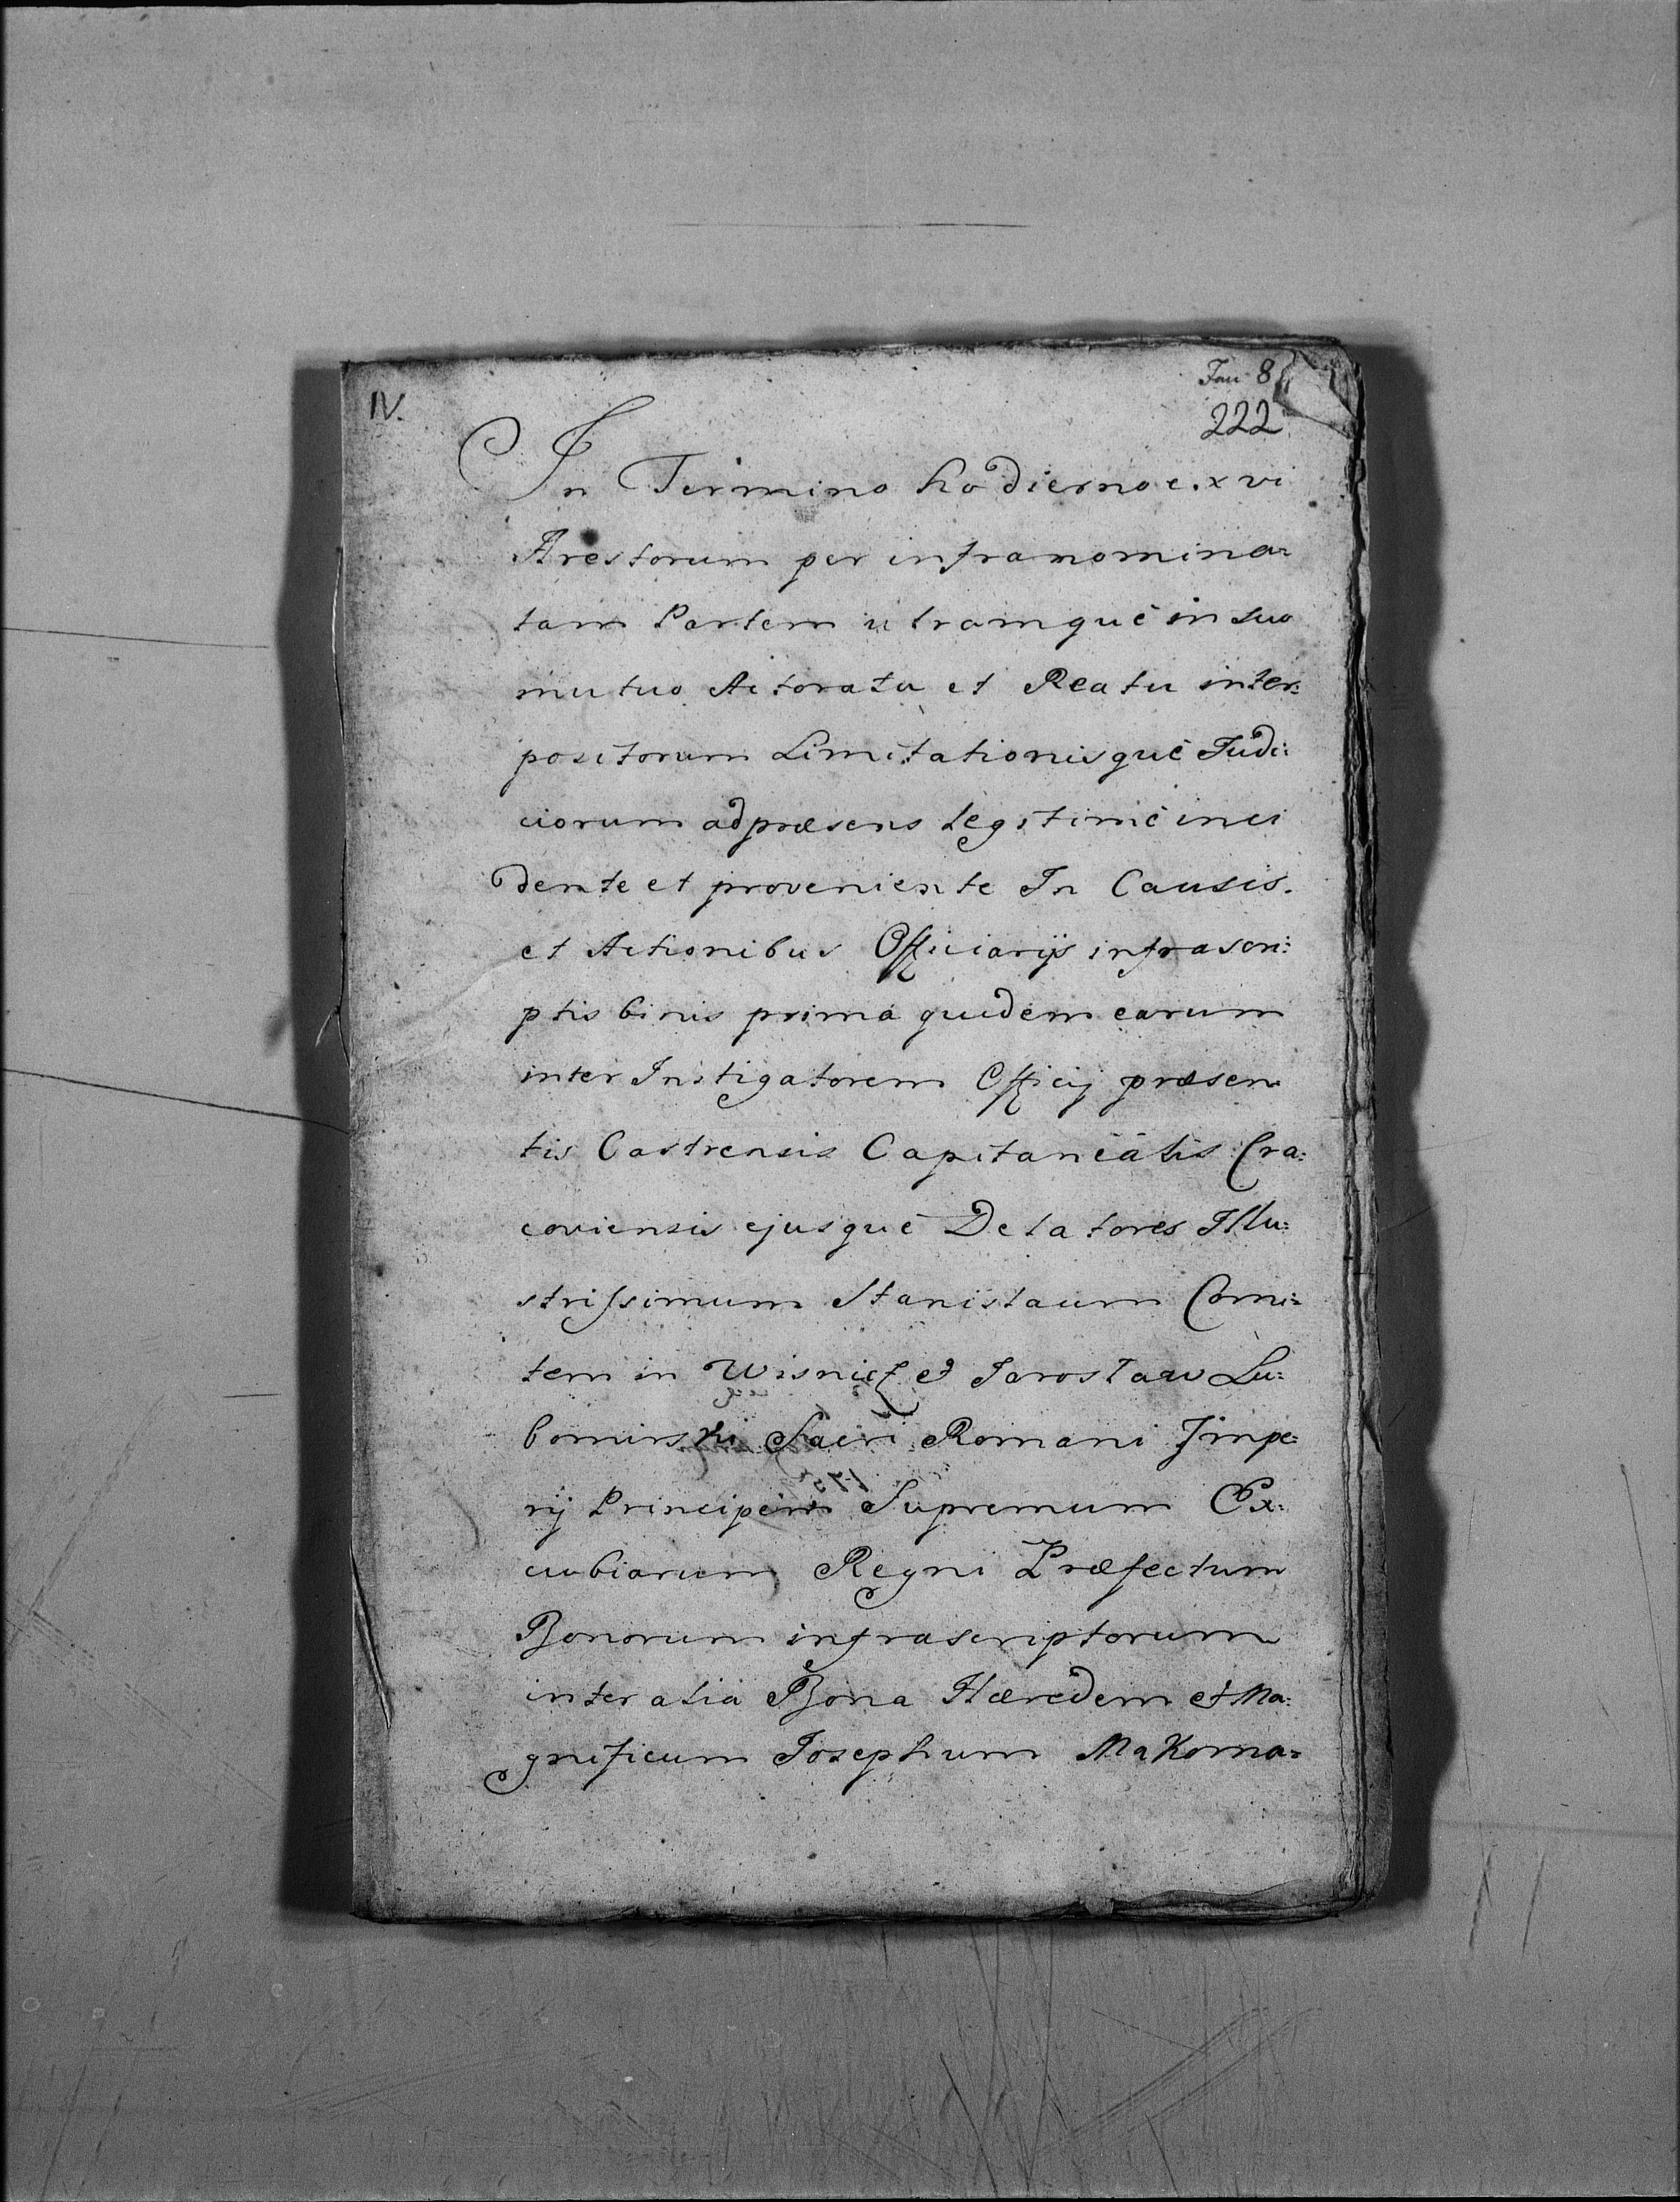 IV.
Fau 8
222
In Termino hodierno ex vi
Arestorum per infranomina=
tam Partem utramquè in suo
mutuo Actoratu et Reatu inter:
positorum Limitationisquè Judi:
ciorum ad præsens legitimè inci
dente et proveniente In Causis.
et Actionibus Officiarijs infrascri:
ptis binis prima quidem earum
inter Instigatorem Officij præsen
tis Castrensis Capitaneàlis Cra:
coviensis ejusquè Delatores Illu:
strissimum Stanislaum Comi=
tem in Wisnicz et Jaroslaw Lu:
bomirski Sacri Romani Impe:
rij Principem Supremum Ex:
cubiarum Regni Præfectum
Bonorum infrascriptorum
inter alia Bona Hæredem et Ma:
gnificum Josephum Makoma=